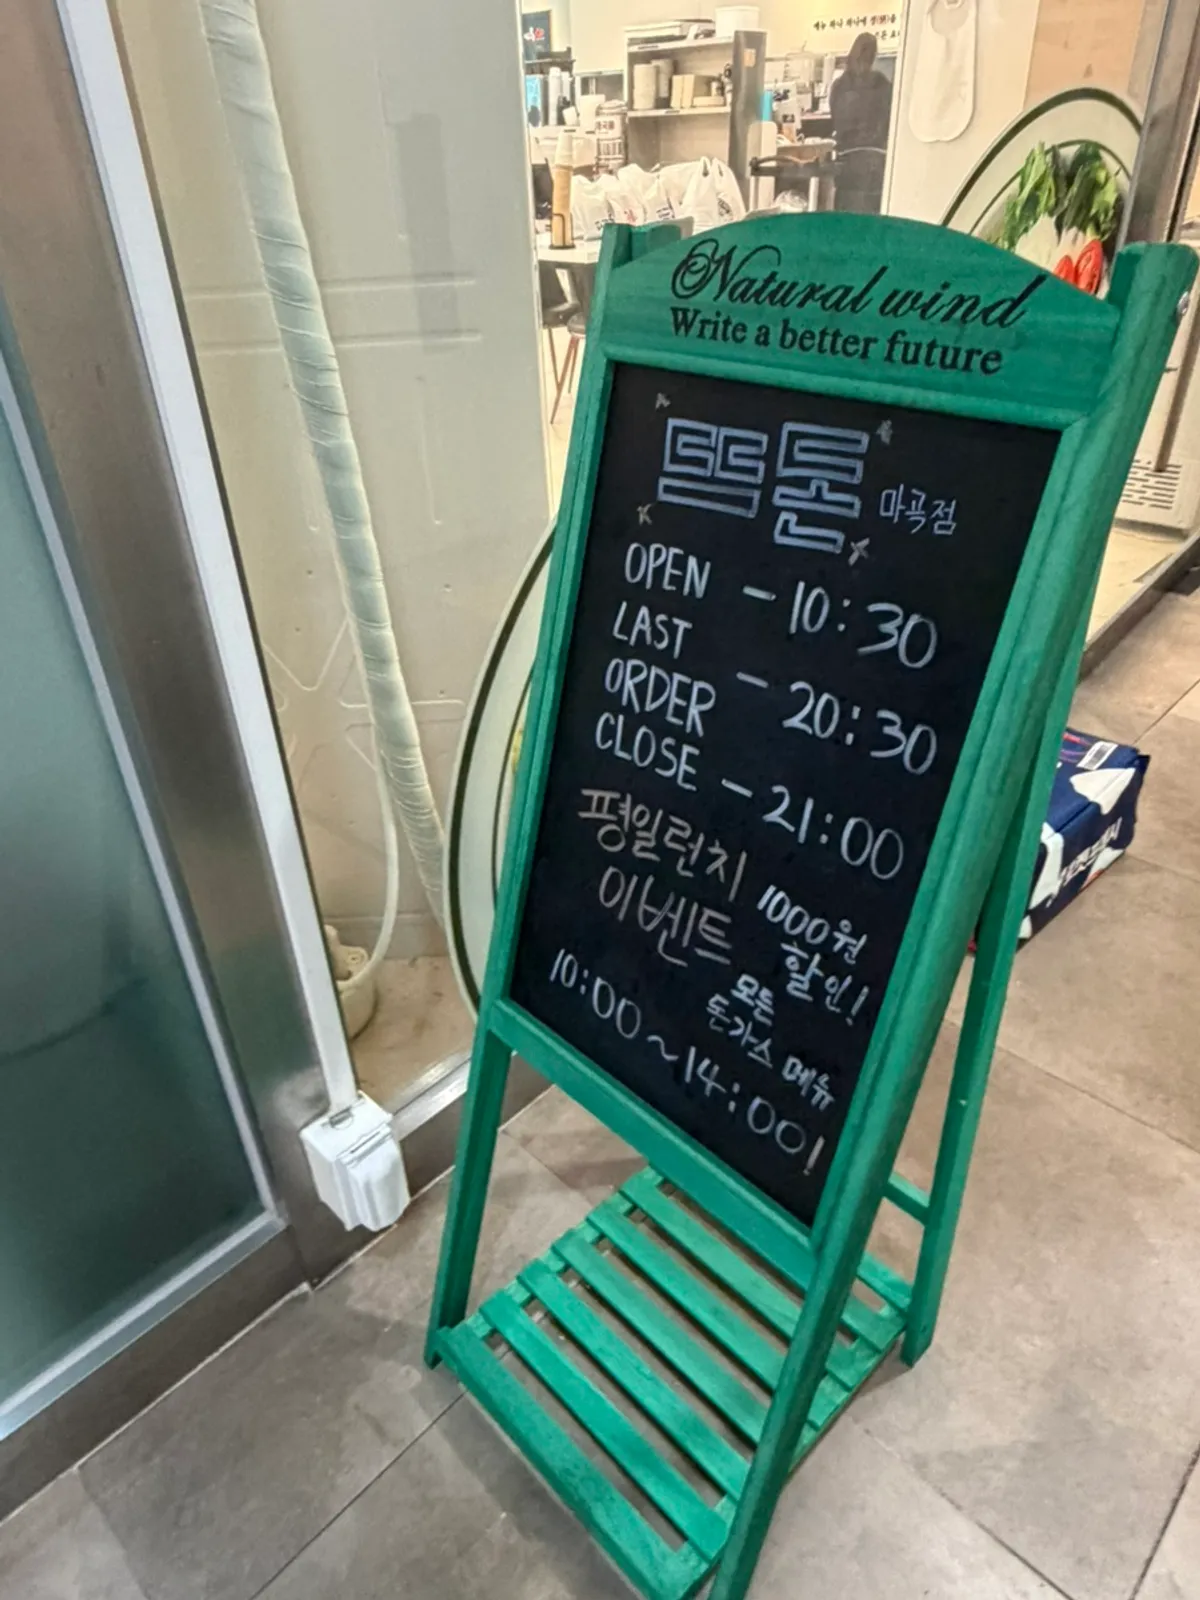 Natural wind
Write a better future
뜨돈 마곡점
OPEN - 10:30
LAST
ORDER - 20:30
CLOSE - 21:00
평일런치
이벤트
1000원
할인!
모든
돈가스 메뉴
10:00~14:00!